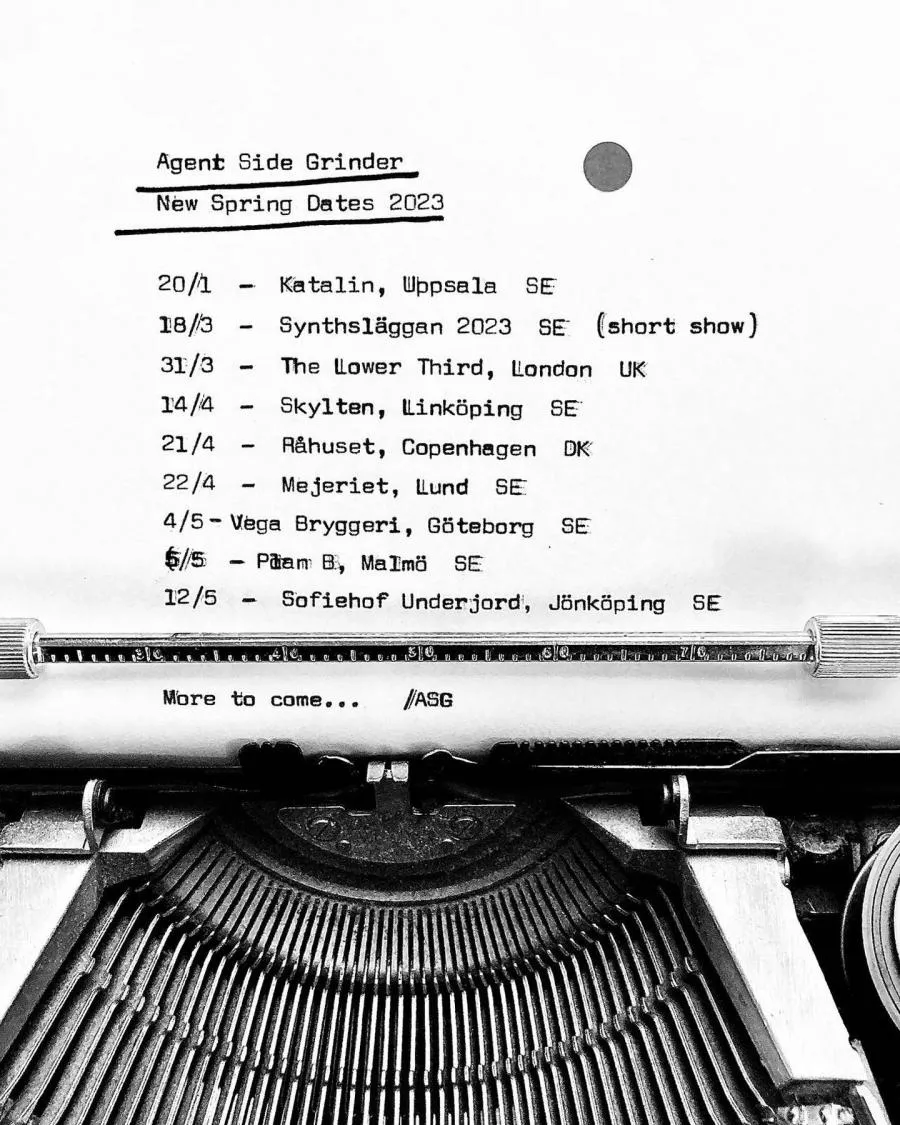 Agent Side Grinder
New Spring Dates 2023
20/1 - Katalin, Uppsala SE
18/3 - Synthsläggan 2023 SE (short show)
31/3 - The Lower Third, London UK
14/4 - Skylten, Linköping SE
21/4 - Råhuset, Copenhagen DK
22/4 - Mejeriet, Lund SE
4/5 - Vega Bryggeri, Göteborg SE
5/5 - Plan B, Malmö SE
12/5 - Sofiehof Underjord, Jönköping SE
30 40 50 60 70
More to come... //ASG